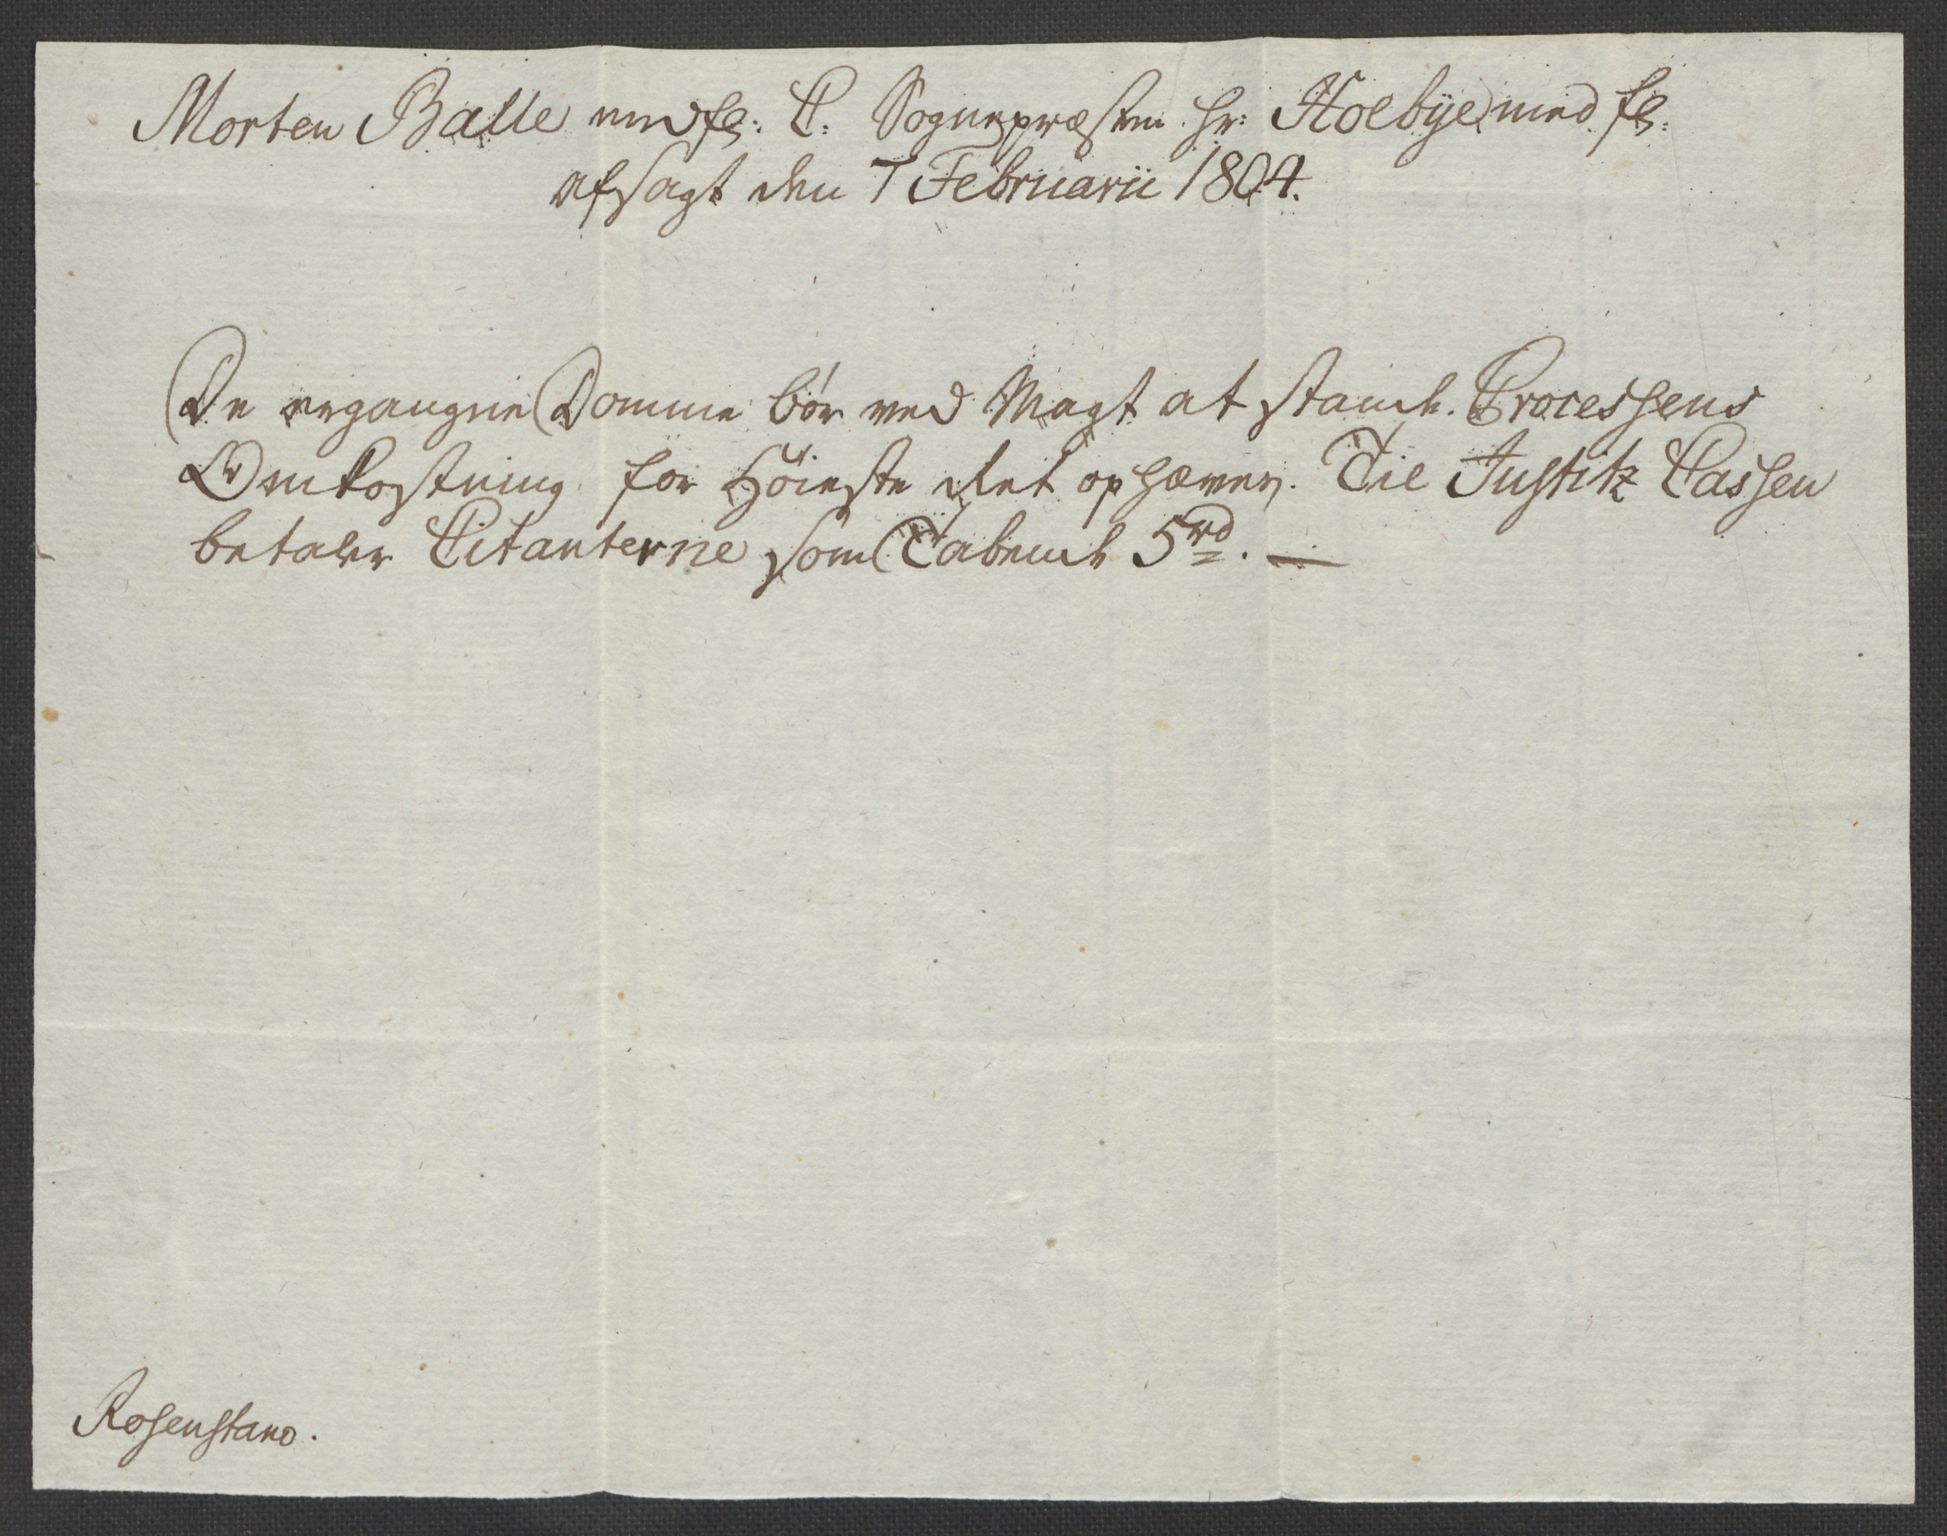 Morten Balle med fl: C. Sognepræsten Hr: Holbye med fl.
afsagt den 7 Februarii 1804.
De ergangne Domme bør ved Magt at stande. Processens
Omkostning for Høieste Ret ophæves. Til Justitz Cassen
betaler Citanterne som Tabende 5 rd. —
Rosenstand.